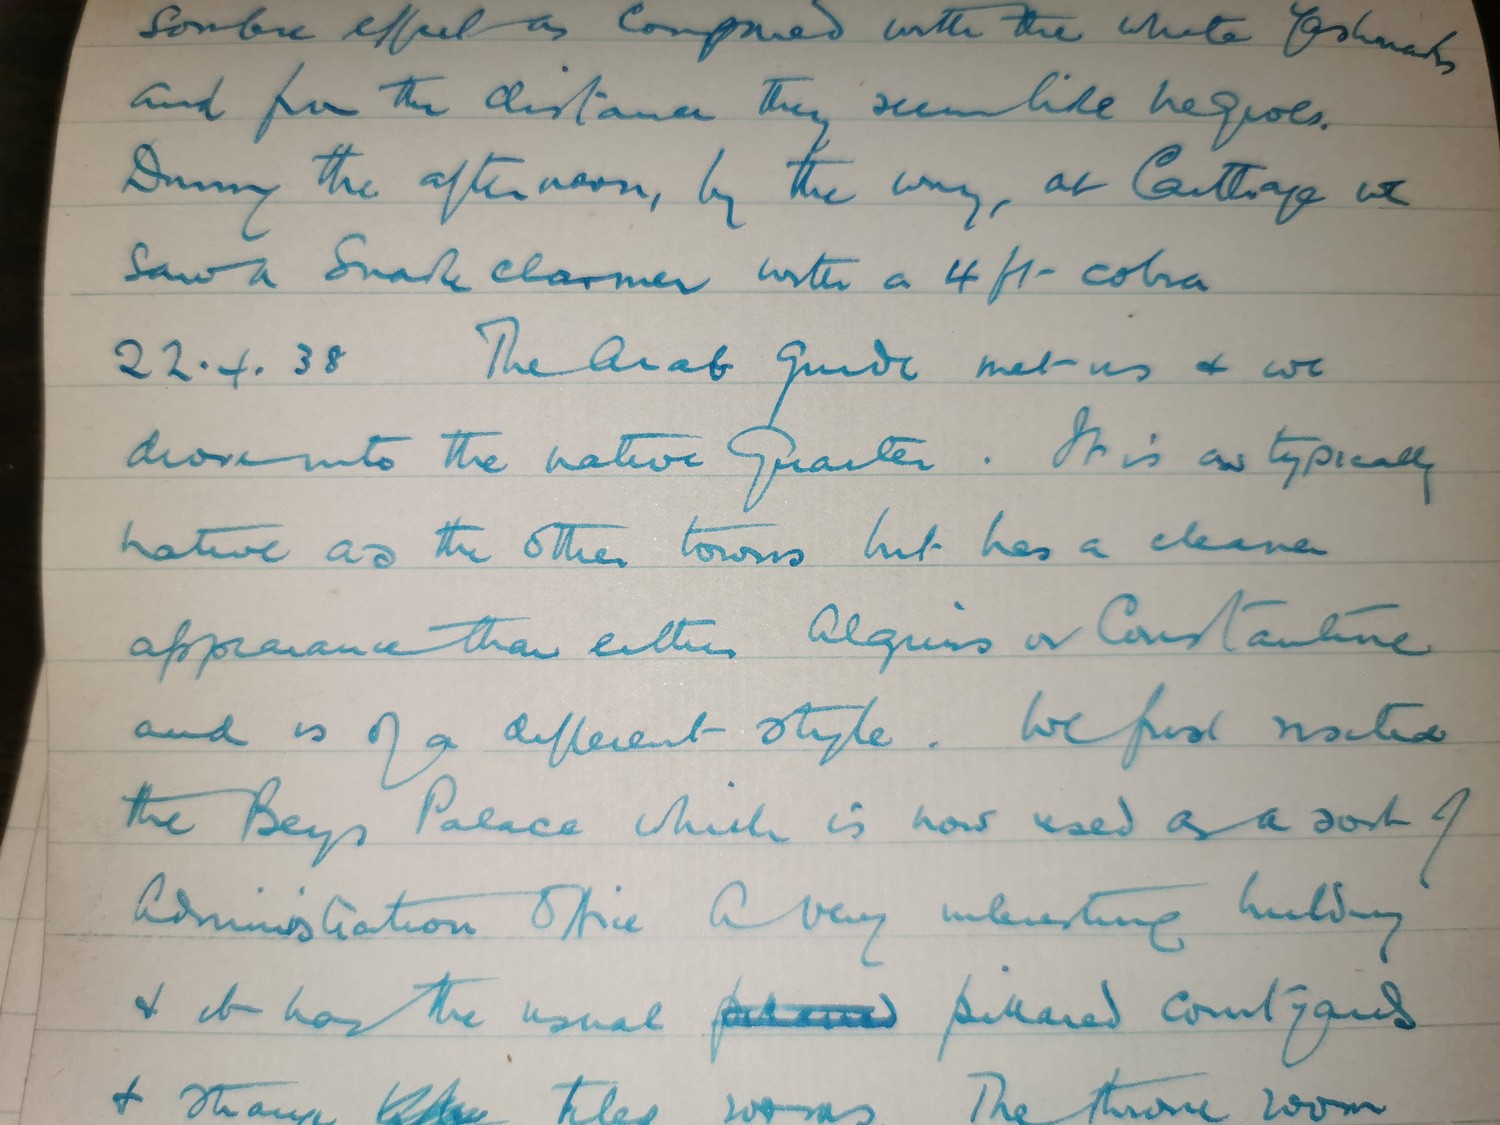 sombre effect as compared with the white Yashmaks
and from the distance they seem like negroes.
During the afternoon, by the way, at Carthage we
saw a Snake charmer with a 4 ft cobra
22.4.38 The Arab Guide met us & we
drove into the native Quarter. It is as typically
native as the other towns but has a cleaner
appearance than either Algiers or Constantine
and is of a different style. We first visited
the Beys Palace which is now used as a sort of
Administration Office A very interesting building
& it has the usual pillared courtyards
& strange tiled rooms. The throne room